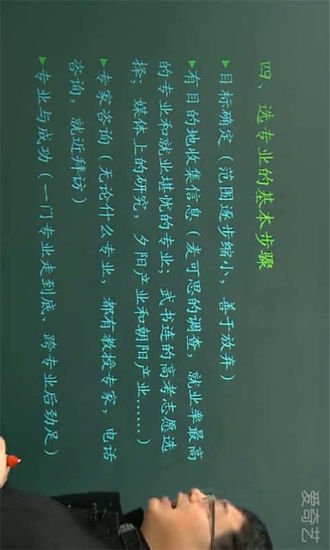 四、选专业的基本步骤
▶目标确定（范围逐步缩小，善于放弃）
▶有目的地收集信息（麦可思的调查，就业率最高
的专业和就业堪忧的专业；武书连的高考志愿选
择；媒体上的研究，夕阳产业和朝阳产业……）
▶专家咨询（无论什么专业，都有教授专家，电话
咨询，就近拜访）
▶专业与成功（一门专业走到底，跨专业后劲足）
爱奇艺